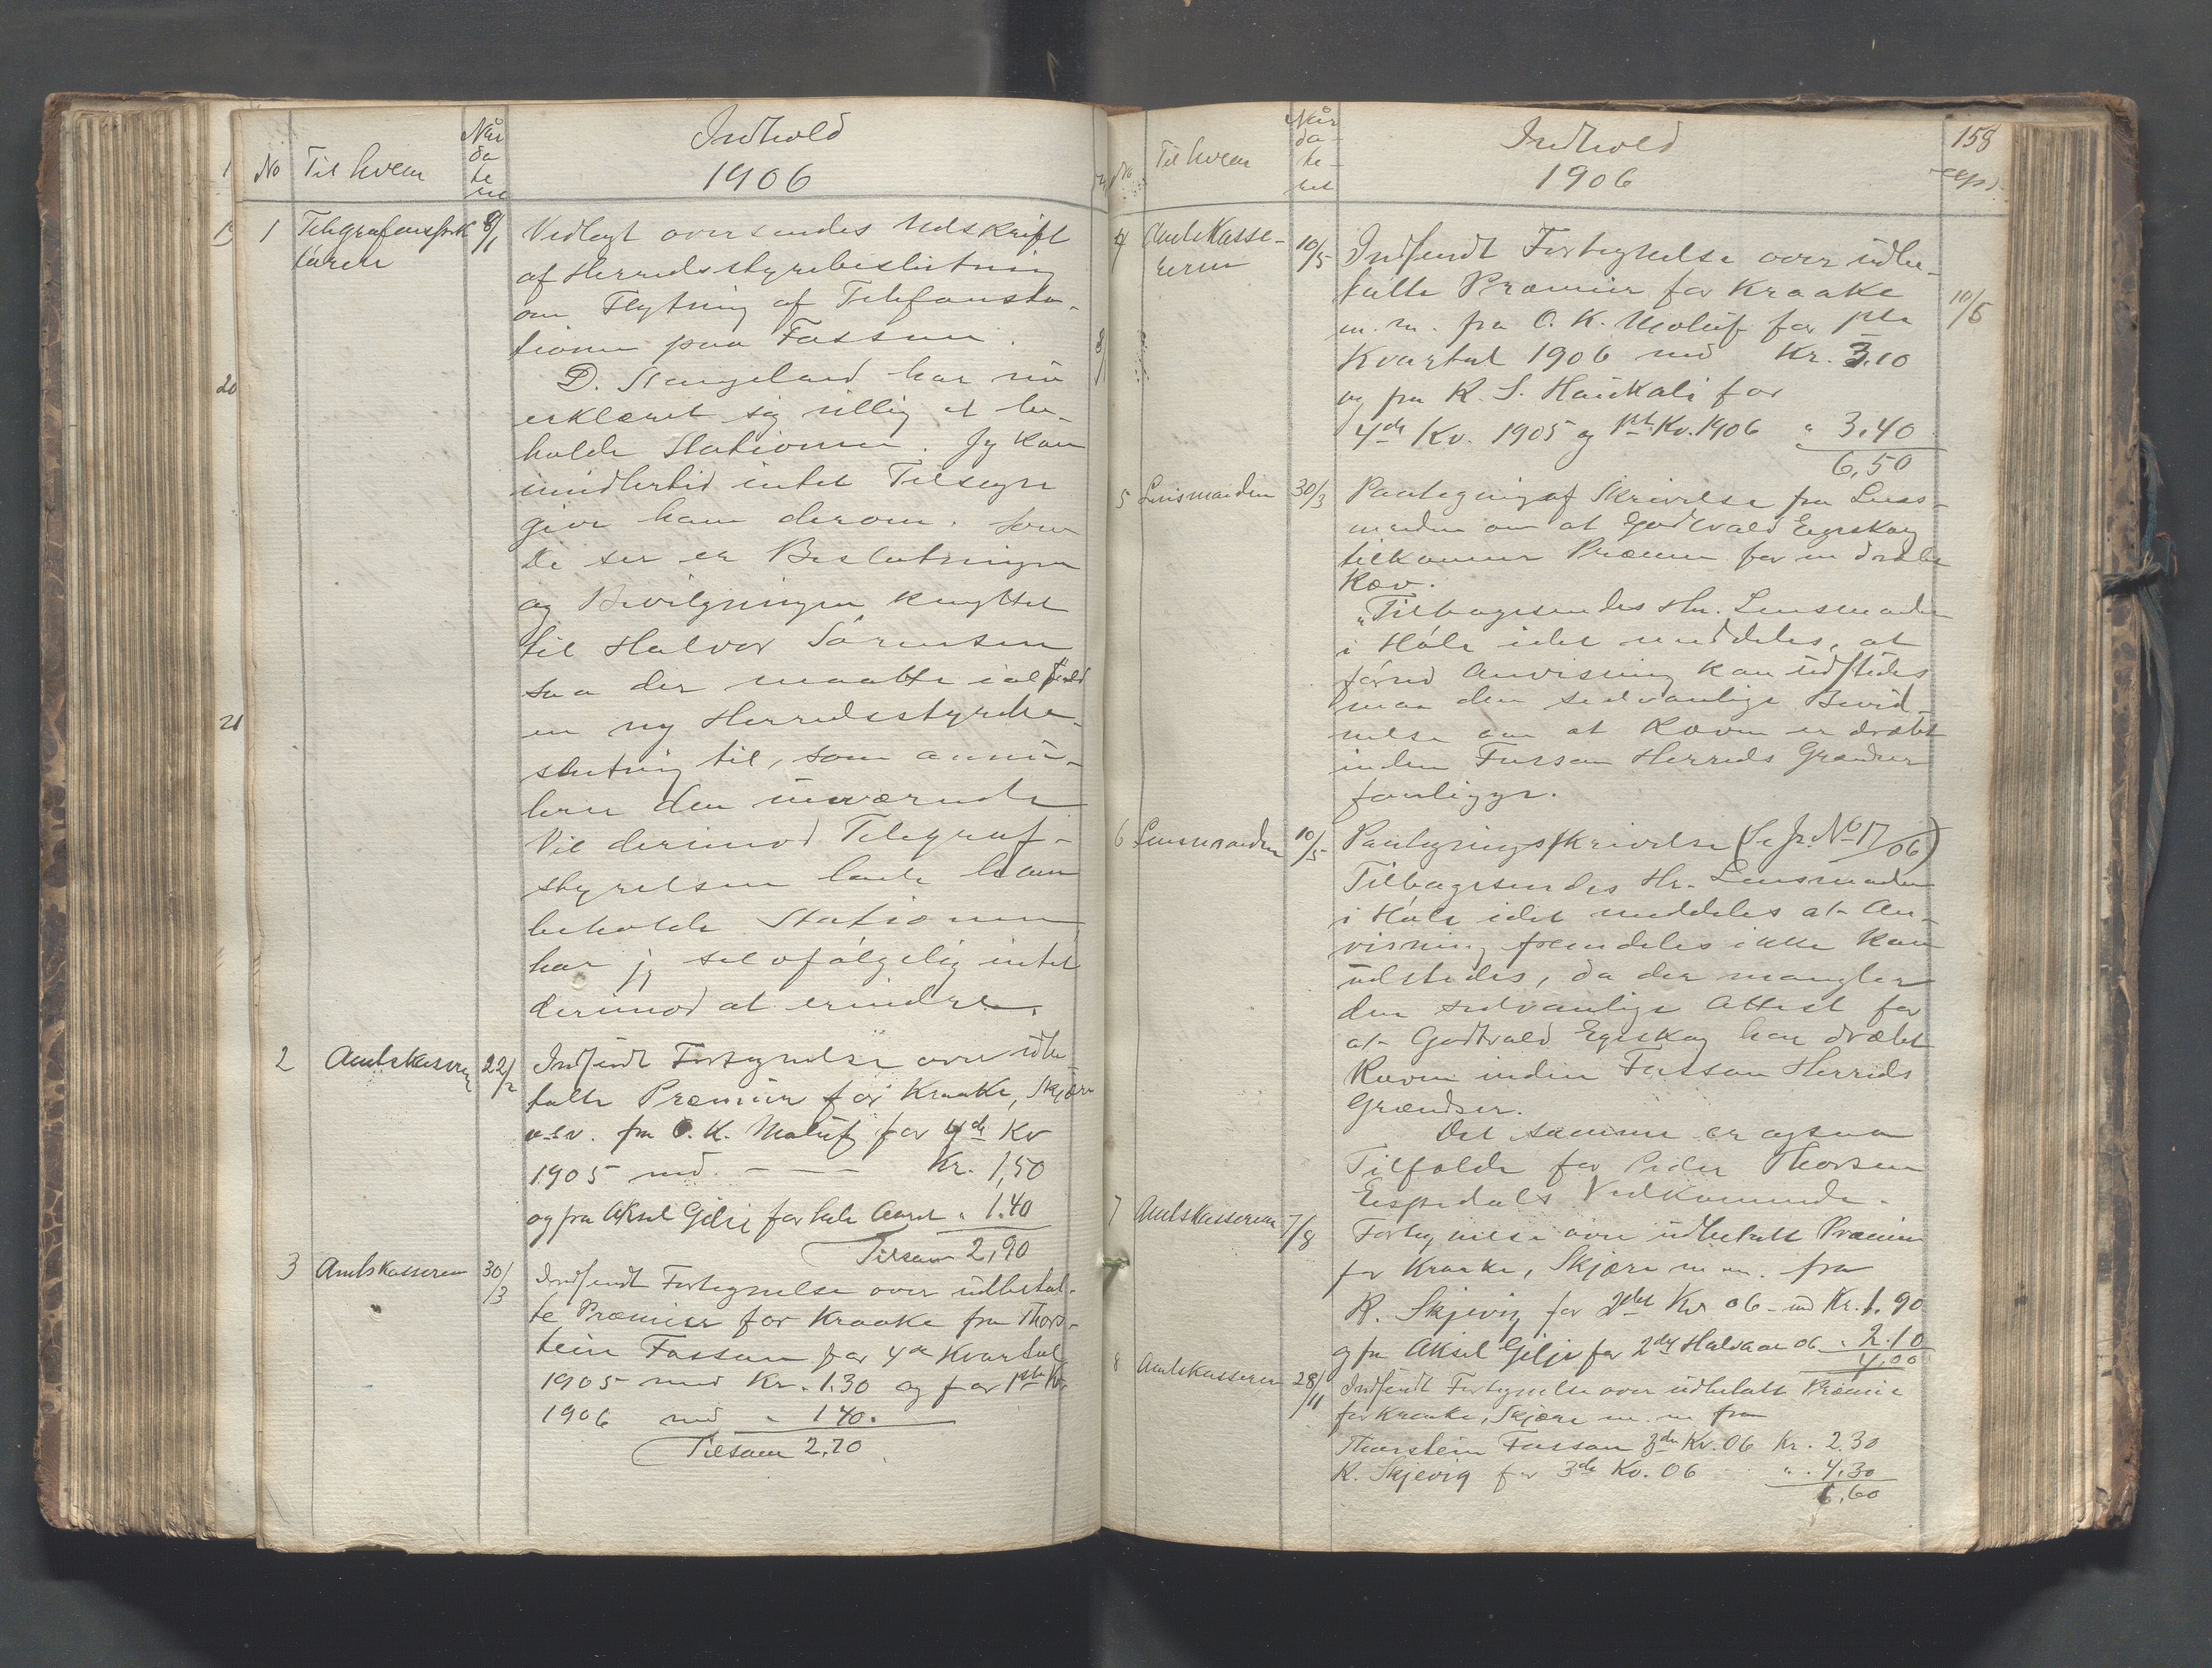 No Til hvem Når da te ret Indhold
1906
1 Telegrafinspek 8/1 Vedlagt oversendes Udskrift
tören af Herredsstyrebeslutning
om Flytning af Telefonsta-
tionen paa Fossan.
D. Stangeland har nu
erklæret sig villig at be-
holde Stationen. Jeg kan
imidlertid intet Tilsagn
give ham derom. Som
De ser er Beslutningen
og Bevilgningen knyttet
til Halvor Sörensen
saa der maatte ialfald
en ny Herredsstyrebe-
slutning til, som annu-
lerer den nuværende
Vil derimod Telegraf-
styrelsen lade ham
beholde Stationen
har jeg selvfölgelig intet
derimod at erindre.
2 Amtskasseren 22/2 Indsendt Fortegnelse over udbe
talte Præmier for Kraake, Skjære
o.s.v. fra O. K. Maluf for 4de Kv
1905 med - — — Kr. 1,50
og fra Aksel Gilje for hele Aaret " 1.40
Tilsam 2,90
3 Amtskasseren 30/3 Indsendt Fortegnelse over udbetal-
te Præmier for Kraake fra Thor-
stein Fossan for 4de Kvartal
1905 med Kr. 1.30 og for 1ste Kv
1906 med " 1 40.
Tilsam 2.70
20
21
158
No Til hvem Når da- te- ret Indhold
1906
4 Amtskasse- 10/5 Indsendt Fortegnelse over udbe-
reren talte Præmier for Kraake 10/5
m.m. fra O. K. Maluf for 1ste
Kvartal 1906 med Kr. 3.10
og fra R. S. Haukali for
4de Kv. 1905 og 1ste Kv. 1906 " 3.40
6,50
5 Lensmanden 30/3 Paategning af Skrivelse fra Lens-
manden om at Godtvald Egeskog
tilkommer Præmie for en dræbt
Ræv.
"Tilbagesendes Hr. Lensmanden
i Höle idet meddeles, at
förend Anvisning kan udstedes
maa den sedvanlige Bevid-
nelse om at Ræven er dræbt
inden Fossan Herreds Grændser
foreligge.
6 Lensmanden 10/5 Paategningsskrivelse (Se Jr. No 17/06)
Tilbagesendes Hr. Lensmanden
i Höle idet meddeles at An-
visning fremdeles ikke kan
udstedes, da der mangler
den sedvanlige Attest for
at Godtvald Egeskog har dræbt
Ræven inden Fossan Herreds
Grændser.
Det samme er ogsaa
Tilfælde for Peder Thorsen
Eispedals Vedkommende.
7 Amtskasseren 7/8 Fortegnelse over udbetalt Præmier
for Kraake, Skjære m.m. fra
R. Skjevig for 2det Kv 06 - med Kr. 1. 90
og fra Aksel Gilje for 2det Halvaar 06 " 2.10
4.00
8 Amtskasseren 28/11 Indsendt Fortegnelse over udbetalt Præmie
for Kraake, Skjære m.m fra
Thorstein Fossan 3de Kv. 06 Kr. 2.30
R. Skjevig for 3de Kv. 06 " . 4.30
6,60